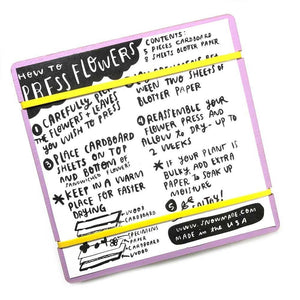 HOW TO
PRESS FLOWERS
CONTENTS:
5 PIECES CARDBOARD
8 SHEETS BLOTTER PAPER
① CAREFULLY
THE FLOWERS + LEAVES
YOU WISH TO PRESS
② PLACE CARDBOARD
SHEETS ON TOP
AND BOTTOM OF
SANDWICHED FLOWERS
* KEEP IN A WARM
PLACE FOR FASTER
DRYING
WOOD
CARDBOARD
SPECIMENS
PAPER
CARDBOARD
WOOD
BETWEEN TWO SHEETS OF
BLOTTER PAPER
④ REASSEMBLE YOUR
FLOWER PRESS AND
ALLOW TO DRY - UP TO
2 WEEKS
* IF YOUR PLANT IS
BULKY, ADD EXTRA
PAPER TO SOAK UP
MOISTURE
⑤ ENJOY!
WWW.SNOWMADE.COM
MADE in the U.S.A